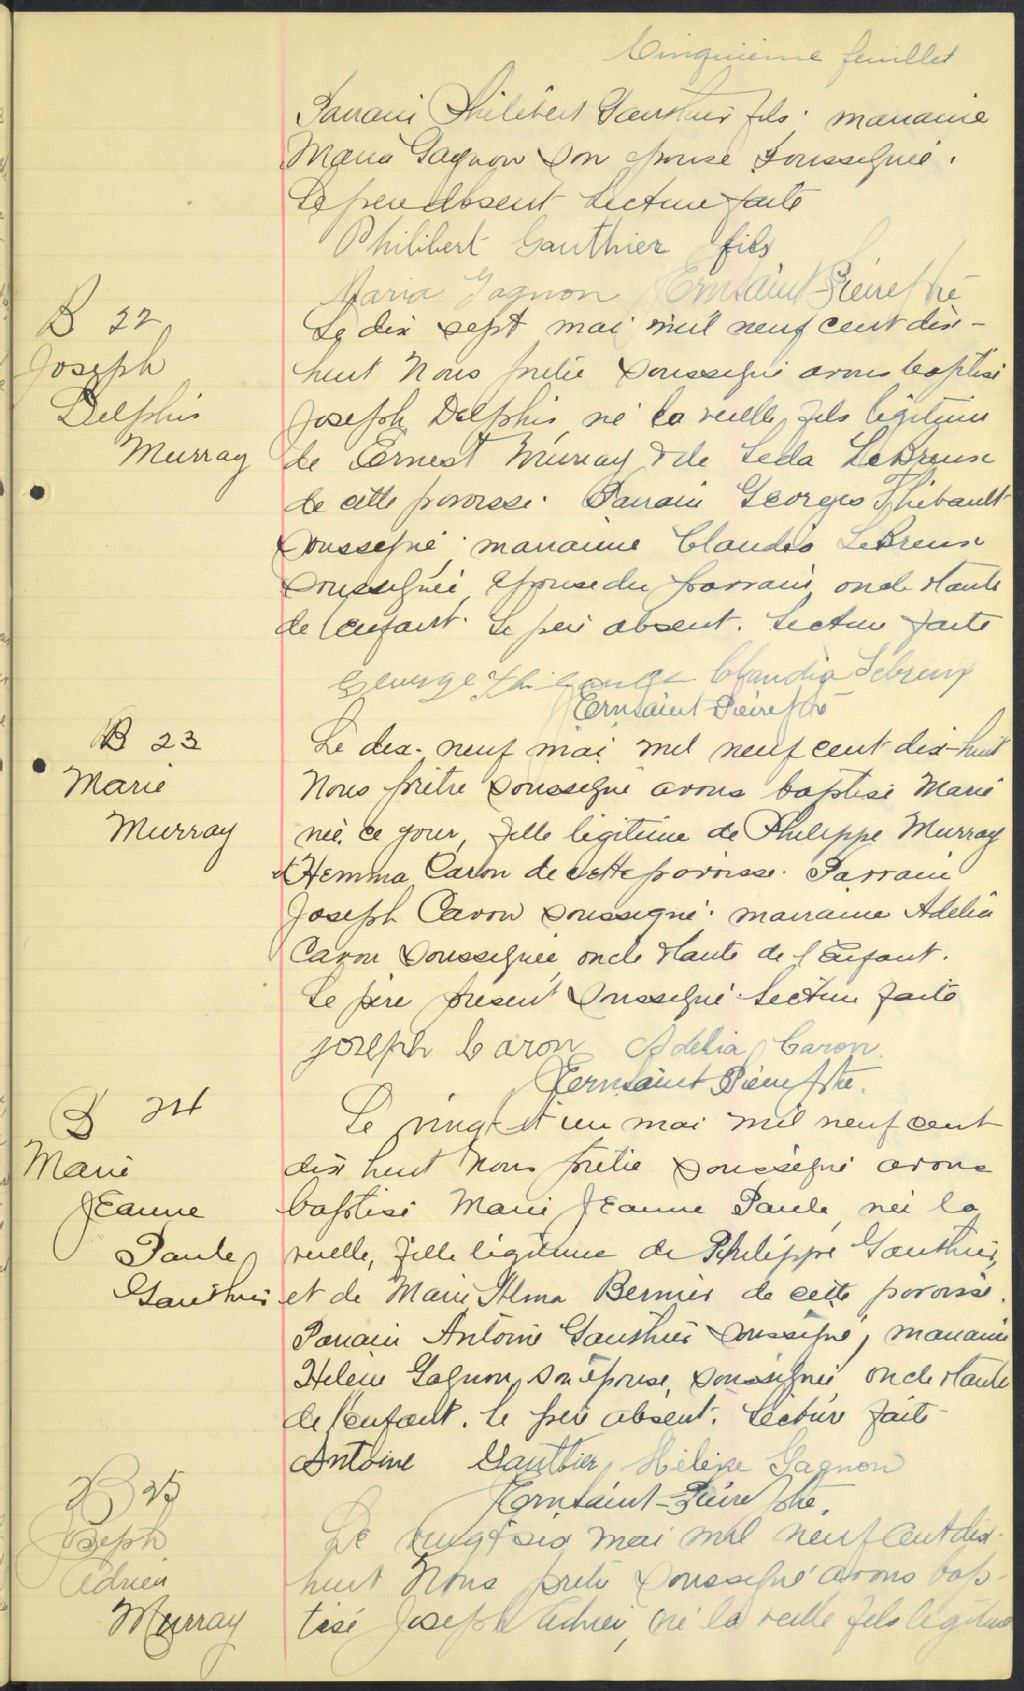 Cinquième feuillet
Parrain Philibert Gauthier fils; marraine
Maria Gagnon son épouse soussignée.
Le père absent Lecture faite
Philibert Gauthier fils
Maria Gagnon J. Ern Saint-Pierre Ptre
B 22
Joseph
Delphis
Murray
Le dix sept mai mil neuf cent dix-
huit Nous prêtre soussigné avons baptisé
Joseph Delphis, né la veille, fils légitime
de Ernest Murray & de Leda LeBreux
de cette paroisse. Parrain Georges Thibault
soussigné; marraine Claudia LeBreux
soussignée, épouse du parrain, oncle & tante
de l'enfant. Le père absent. Lecture faite
George Claudia Lebreux
J. Ern Saint Pierre Ptre
B 23
Marie
Murray
Le dix-neuf mai mil neuf cent dix-huit
Nous prêtre soussigné avons baptisé Marie
née ce jour, fille légitime de Philippe Murray
& Hemma Caron de cette paroisse. Parrain
Joseph Caron soussigné; marraine Adélia
Caron soussignée, oncle & tante de l'enfant.
Le père présent soussigné. Lecture faite
Joseph Caron Adélia Caron
J. Ern Saint Pierre Ptre.
B 24
Marie
Jeanne
Paule
Gauthier
Le vingt et un mai mil neuf cent
dix huit Nous prêtre soussigné avons
baptisé Marie Jeanne Paule, née la
veille, fille légitime de Philippe Gauthier,
et de Marie Alma Bernier de cette paroisse.
Parrain Antoine Gauthier soussigné; marraine
Hélène Gagnon, son épouse, soussignée, oncle & tante
de l'enfant. Le père absent. Lecture faite
Antoine Gauthier Hélène Gagnon
J. Ern Saint-Pierre Ptre.
B 25
Joseph
Adrien
Murray
Le vingt six mai mil neuf cent dix-
huit Nous prêtre soussigné avons bap-
tisé Joseph Adrien, né la veille fils légitime